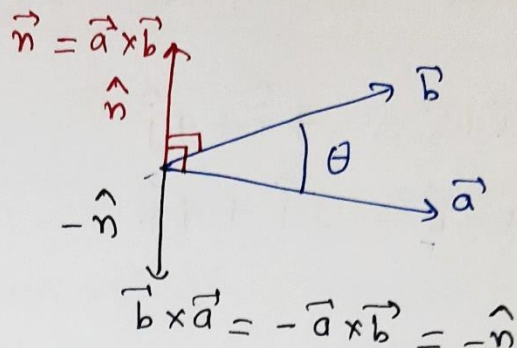 n⃗ = a⃗ × b⃗
n̂
b⃗
θ
a⃗
-n̂
b⃗ × a⃗ = - a⃗ × b⃗ = -n̂